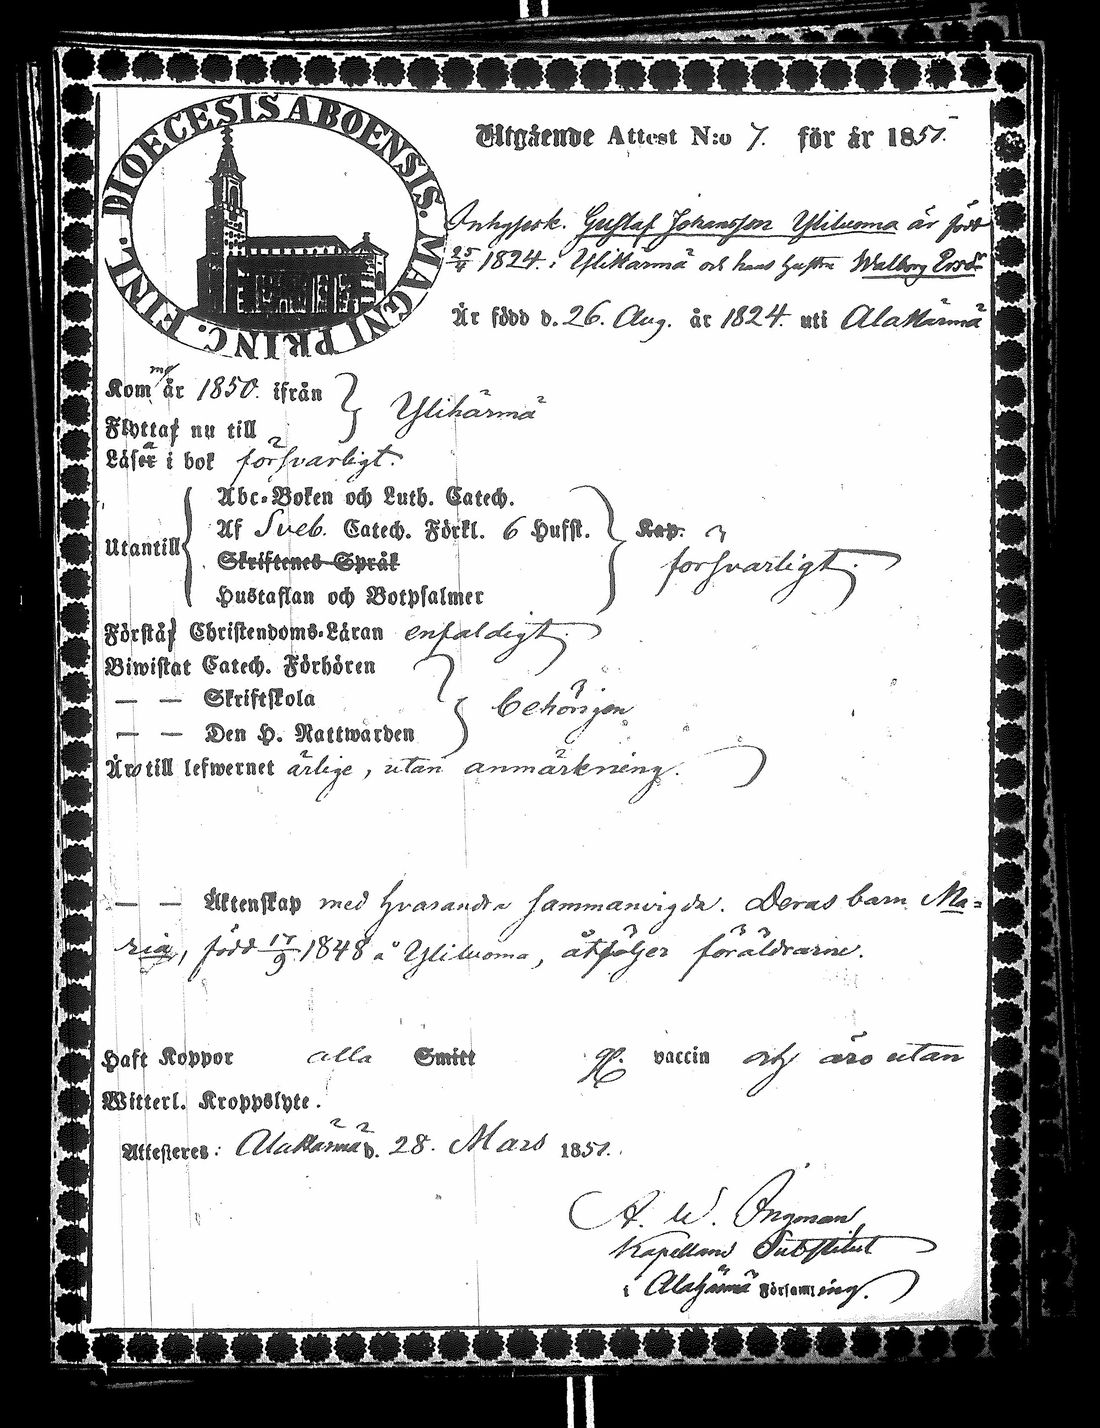 DIOECESIS ABOENSIS. MAGNI PRINC. FINL.
Utgående Attest N:o 7. för år 1851.
Inhysesk. Gustaf Johansson Yliluoma är född
25/4 1824. i Ylihärmä och hans hustru Walborg
Är född d. 26. Aug. år 1824. uti Alahärmä
Kom år 1850. ifrån
Ylihärmä
Flyttaf nu till
Läser i bok försvarligt.
Abc-Boken och Luth. Catech.
Af Sveb. Catech. Förkl. 6 Hufst. Kap.
Utantill
Skriftenes Språk
försvarligt.
Hustaflan och Botpsalmer
Förstå Christendoms-Läran enfaldigt.
Biwistat Catech. Förhören
— — Skriftskola
behörigen
— — Den H. Nattwarden
Äro till lefwernet ärlige, utan anmärkning.
— — Äktenskap med hvarandra sammanvigda. Deras barn Ma=
ria, född 17/9 1848 i Yliluoma, åtföljer föräldrarne.
Haft Koppor alla Smitt vaccin och äro utan
Witterl. Kroppslyte.
Attesteres: Alahärmä d. 28. Mars 1851.
A. W. Ingman,
Kapellans Substitut
i Alahärmä Församling.